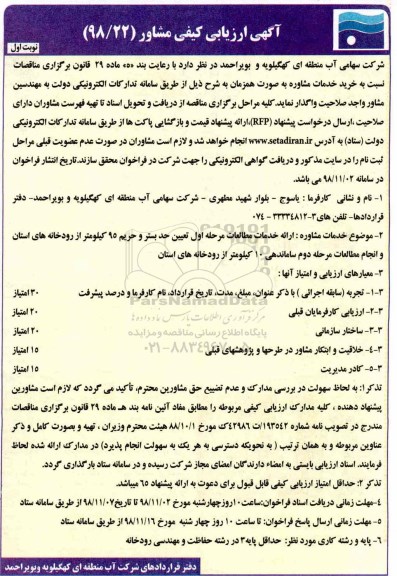 آگهی ارزیابی کیفی مشاور (۹۸/۲۲)
نوبت اول
شرکت سهامی آب منطقه ای کهگیلویه و بویراحمد در نظر دارد با رعایت بند «ه» ماده ۲۹ قانون برگزاری مناقصات
نسبت به خرید خدمات مشاوره به صورت همزمان به شرح ذیل از طریق سامانه تدارکات الکترونیکی دولت به مهندسین
مشاور واجد صلاحیت واگذار نماید.کلیه مراحل برگزاری مناقصه از دریافت و تحویل اسناد تا تهیه فهرست مشاوران دارای
صلاحیت ،ارسال درخواست پیشنهاد (RFP)،ارائه پیشنهاد قیمت و بازگشایی پاکت ها از طریق سامانه تدارکات الکترونیکی
دولت (ستاد) به آدرس www.setadiran.ir انجام خواهد شد و لازم است مشاوران در صورت عدم عضویت قبلی مراحل
ثبت نام را در سایت مذکور و دریافت گواهی الکترونیکی را جهت شرکت در فراخوان محقق سازند.تاریخ انتشار فراخوان
در سامانه ۹۸/۱۱/۰۲ می باشد.
۱- نام و نشانی کارفرما : یاسوج - بلوار شهید مطهری - شرکت سهامی آب منطقه ای کهگیلویه و بویراحمد- دفتر
قراردادها- تلفن های۳-۳۳۳۳۴۸۱۲ - ۰۷۴
۲-موضوع خدمات مشاوره : ارائه خدمات مطالعات مرحله اول تعیین حد بستر و حریم ۹۵ کیلومتر از رودخانه های استان
و انجام مطالعات مرحله دوم ساماندهی ۱۰ کیلومتر از رودخانه های استان
۳- معیارهای ارزیابی و امتیاز آنها :
۳-۱- تجربه (سابقه اجرائی ) با ذکر عنوان، مبلغ، مدت، تاریخ قرارداد، نام کارفرما و درصد پیشرفت ۳۰ امتیاز
۳-۲- ارزیابی کارفرمایان قبلی ۲۰ امتیاز
۳-۳- ساختار سازمانی ۲۰ امتیاز
۳-۴- خلاقیت و ابتکار مشاور در طرحها و پژوهشهای قبلی ۱۵ امتیاز
۳-۵- کادر مدیریت ۱۵ امتیاز
تذکر۱: به لحاظ سهولت در بررسی مدارک و عدم تضییع حق مشاورین محترم، تأکید می گردد که لازم است مشاورین
پیشنهاد دهنده ، کلیه مدارک ارزیابی کیفی مربوطه را مطابق مفاد آئین نامه بند هـ ماده ۲۹ قانون برگزاری مناقصات
مندرج در تصویب نامه شماره ۱۹۳۵۴۲/ت ۴۲۹۸۶ک مورخ ۸۸/۱۰/۱ هیئت محترم وزیران ، تهیه و بصورت کامل و ذکر
عناوین مربوطه و به همان ترتیب ( به نحویکه دسترسی به هر یک به سهولت انجام پذیرد) در مدارک ارائه شده لحاظ
فرمایند. اسناد ارزیابی بایستی به امضاء دارندگان امضای مجاز شرکت رسیده و در سامانه ستاد بارگذاری گردد.
تذکر ۲: حداقل امتیاز ارزیابی کیفی قابل قبول برای دعوت به ارائه پیشنهاد ۶۵ میباشد.
۴-مهلت زمانی دریافت اسناد فراخوان:ساعت۱۰ روزچهارشنبه مورخ ۹۸/۱۱/۰۲ تا تاریخ۹۸/۱۱/۰۷ از طریق سامانه ستاد
۵- مهلت زمانی ارسال پاسخ فراخوان: تا ساعت ۱۰ روز چهار شنبه مورخ ۹۸/۱۱/۱۶ از طریق سامانه ستاد
۶- پایه و رشته کاری مورد نظر: حداقل پایه۳ در رشته حفاظت و مهندسی رودخانه
دفتر قراردادهای شرکت آب منطقه ای کهگیلویه وبویراحمد
ParsNamadData
پایگاه اطلاع رسانی مناقصه و مزایده
۰۲۱-۸۸۳۴۹۶۷۰-۵